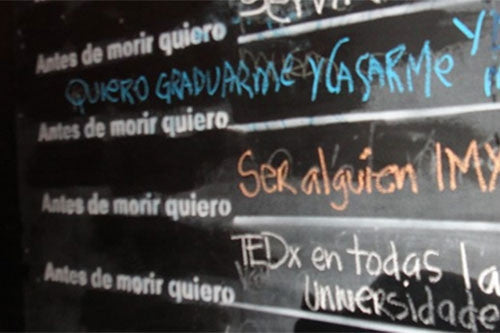 Antes de morir quiero
QUIERO GRADUARME Y CASARME Y
Antes de morir quiero
Ser alguien
Antes de morir quiero
TEDx en todas la
Antes de morir quiero
UNIVERSIDADE